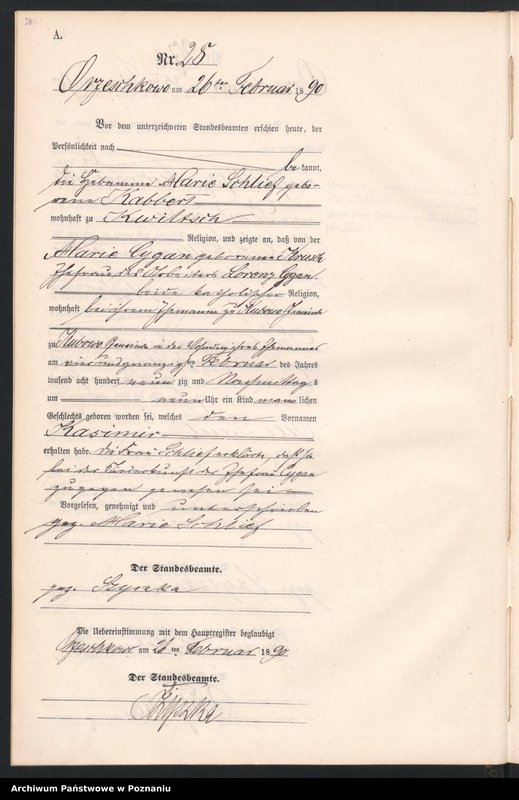 20
A.
Nr. 25
Orzeschkowo am 26ten Februar 1890
Vor dem unterzeichneten Standesbeamten erschien heute, der
Persönlichkeit nach
bekannt,
die Hebamme Marie Schlief gebo-
rene Kabbert
wohnhaft zu Kwiltsch
Religion, und zeigte an, daß von der
Marie Cygan geborenen
Ehefrau des Arbeiters Lorenz Cygan
beide katholischer Religion,
wohnhaft bei ihrem Ehemann zu Kubowo Gemeinde
zu Kubowo Gemeinde in der Wohnung ihres Ehemannes
am vierundzwanzigsten Februar des Jahres
tausend acht hundert neunzig und Nachmittags
um neun Uhr ein Kind männlichen
Geschlechts geboren worden sei, welches den Vornamen
Kasimir
erhalten habe. Die Frau Schlief erklärte, daß sie
bei der Niederkunft der Ehefrau Cygan
zugegen gewesen sei
Vorgelesen, genehmigt und unterschrieben
gez. Marie Schlief
Der Standesbeamte.
gez. Szyszka
Die Uebereinstimmung mit dem Hauptregister beglaubigt
Orzeschkowo am 26ten Februar 1890
Der Standesbeamte.
Szyszka
Archiwum Państwowe w Poznaniu